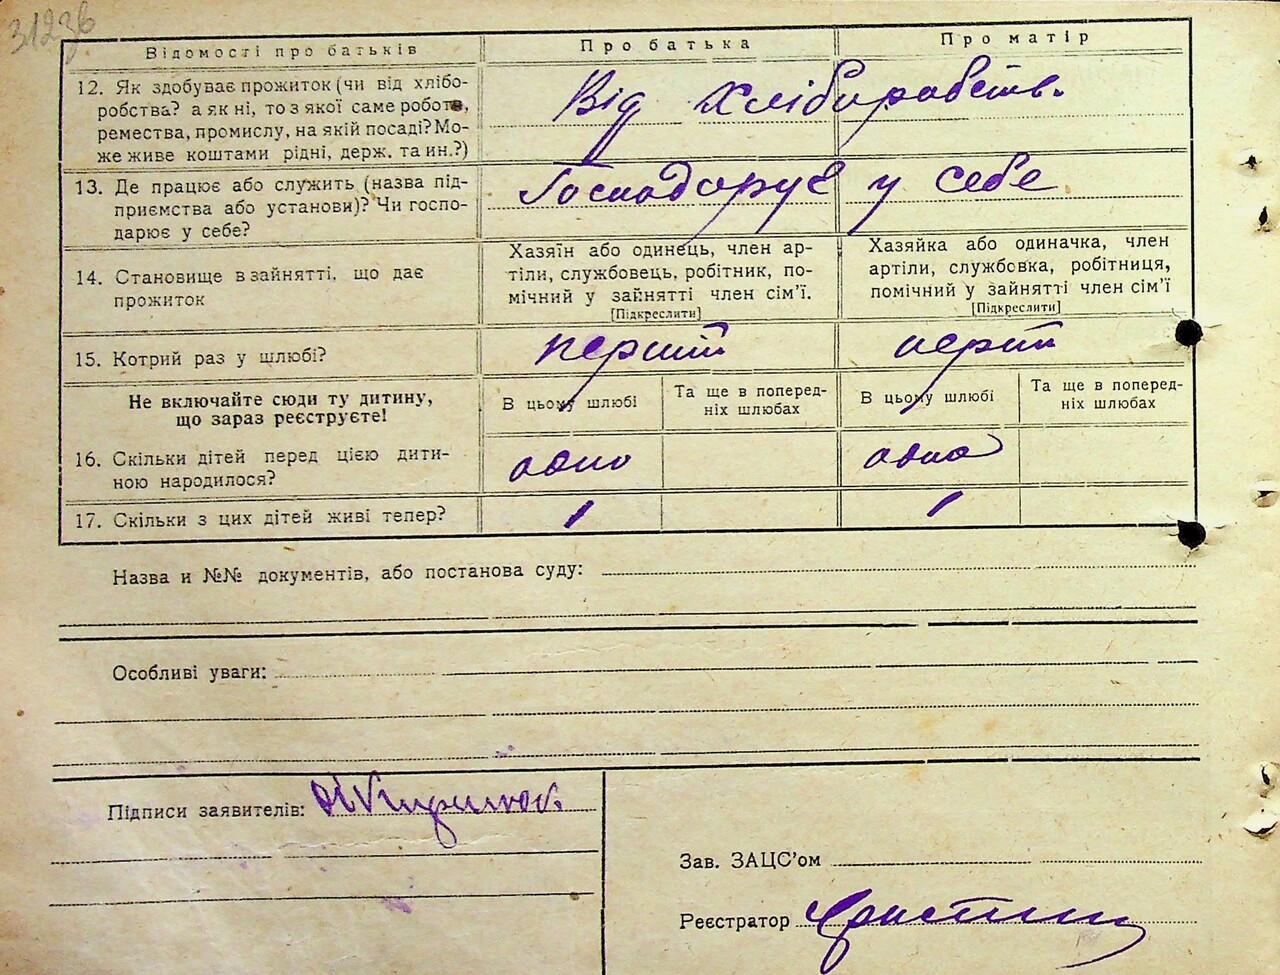 3123б
Відомості про батьків
Про батька
Про матір
12. Як здобуває прожиток (чи від хлібо-
робства? а як ні, то з якої саме роботи,
ремества, промислу, на якій посаді? Мо-
же живе коштами рідні, держ. та ин.?)
Від хліборобств.
13. Де працює або служить (назва під-
приємства або установи)? Чи госпо-
дарює у себе?
Господарує у себе
14. Становище в зайнятті, що дає
прожиток
Хазяїн або одинець, член ар-
тіли, службовець, робітник, по-
мічний у зайнятті член сім'ї.
[Підкреслити]
Хазяйка або одиначка, член
артіли, службовка, робітниця,
помічний у зайнятті член сім'ї
[Підкреслити]
15. Котрий раз у шлюбі?
перший
перший
Не включайте сюди ту дитину,
що зараз реєструєте!
В цьому шлюбі
Та ще в поперед-
ніх шлюбах
В цьому шлюбі
Та ще в поперед-
ніх шлюбах
16. Скільки дітей перед цією дити-
ною народилося?
одно
одно
17. Скільки з цих дітей живі тепер?
1
1
Назва и №№ документів, або постанова суду:
Особливі уваги:
Підписи заявителів:
Зав. ЗАЦС'ом
Реєстратор